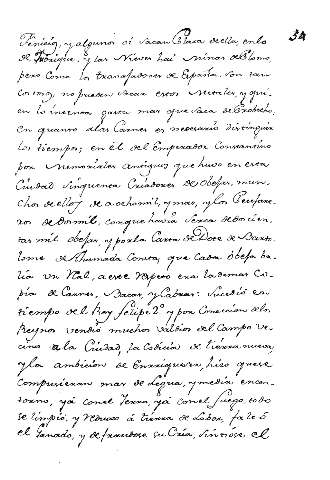 34
Fenicios, y algunos oi sacan Plata della, en lo
de Fabrique. y las Nieves hai Minas de Plomo,
pero como los trabajadores de España son tan
costosos, no pueden sacar esos Metales, y qui-
en lo intenta gasta mas que saca de Probecho,
En quanto a las Carnes es necesario distinguir
los tiempos; en el del Emperador Constantino
por Memoriales antiguos que huvo en esta
Ciudad sinquenta Criadores de Obejas, mu-
chos de ellos de a ocho mil, y mas, y los
de dos mil, conque havia serca de docien-
tas mil obejas, y por la Carta de Doce de
lome de Ahumada consta, que cada obeja ba-
lia un Real, a este respeto era la demas co-
pia de Carnes, Bacas, y Cabras: Sucedio en
tiempo del Rey Felipe 2º y por concesion de los
Reynos vendio muchos valdios del Campo ve-
cino a la Ciudad, la Codicia de tierra nueva,
y la ambicion de Enrriquesen, hiso que se
compusieran mas de legua, y media en con-
torno, yá con el yá con el fuego, todo
se limpió, y reduxo á tierra de Labor, faltó
el Ganado, y su Cria, sintiose el